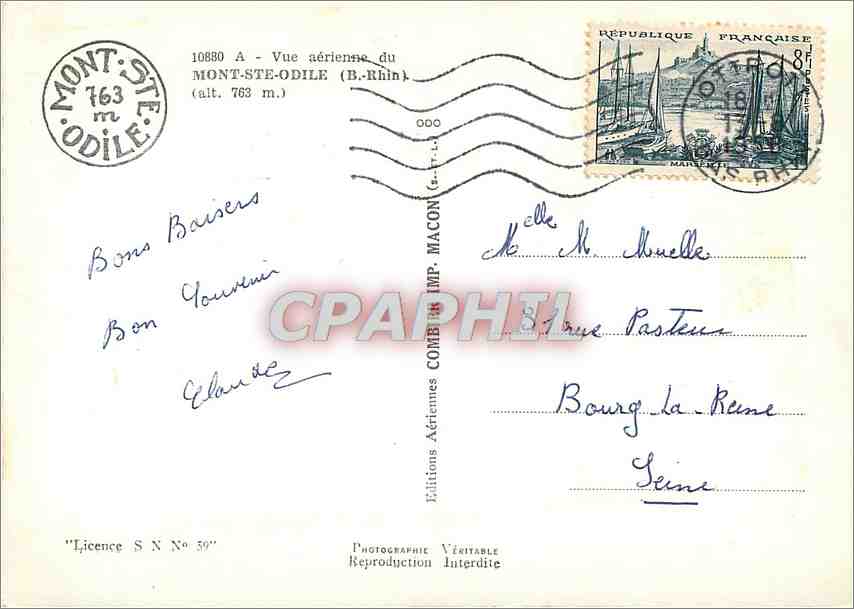 10880 A - Vue aérienne du
MONT-STE-ODILE (B.-Rhin)
(alt. 763 m.)
MONT·STE·ODILE·
763
m
RÉPUBLIQUE FRANÇAISE
8F
MARSEILLE
OTTROTT
BAS-RHIN
Bons Baisers
Bon Souvenir
Claude
Melle M. Muelle
81 rue Pasteur
Bourg-La-Reine
Seine
Editions Aériennes COMBIER IMP. MACON (S.-ET.L.)
ODO
CPAPHIL
"Licence S N Nº 39"
PHOTOGRAPHIE VÉRITABLE
Reproduction Interdite